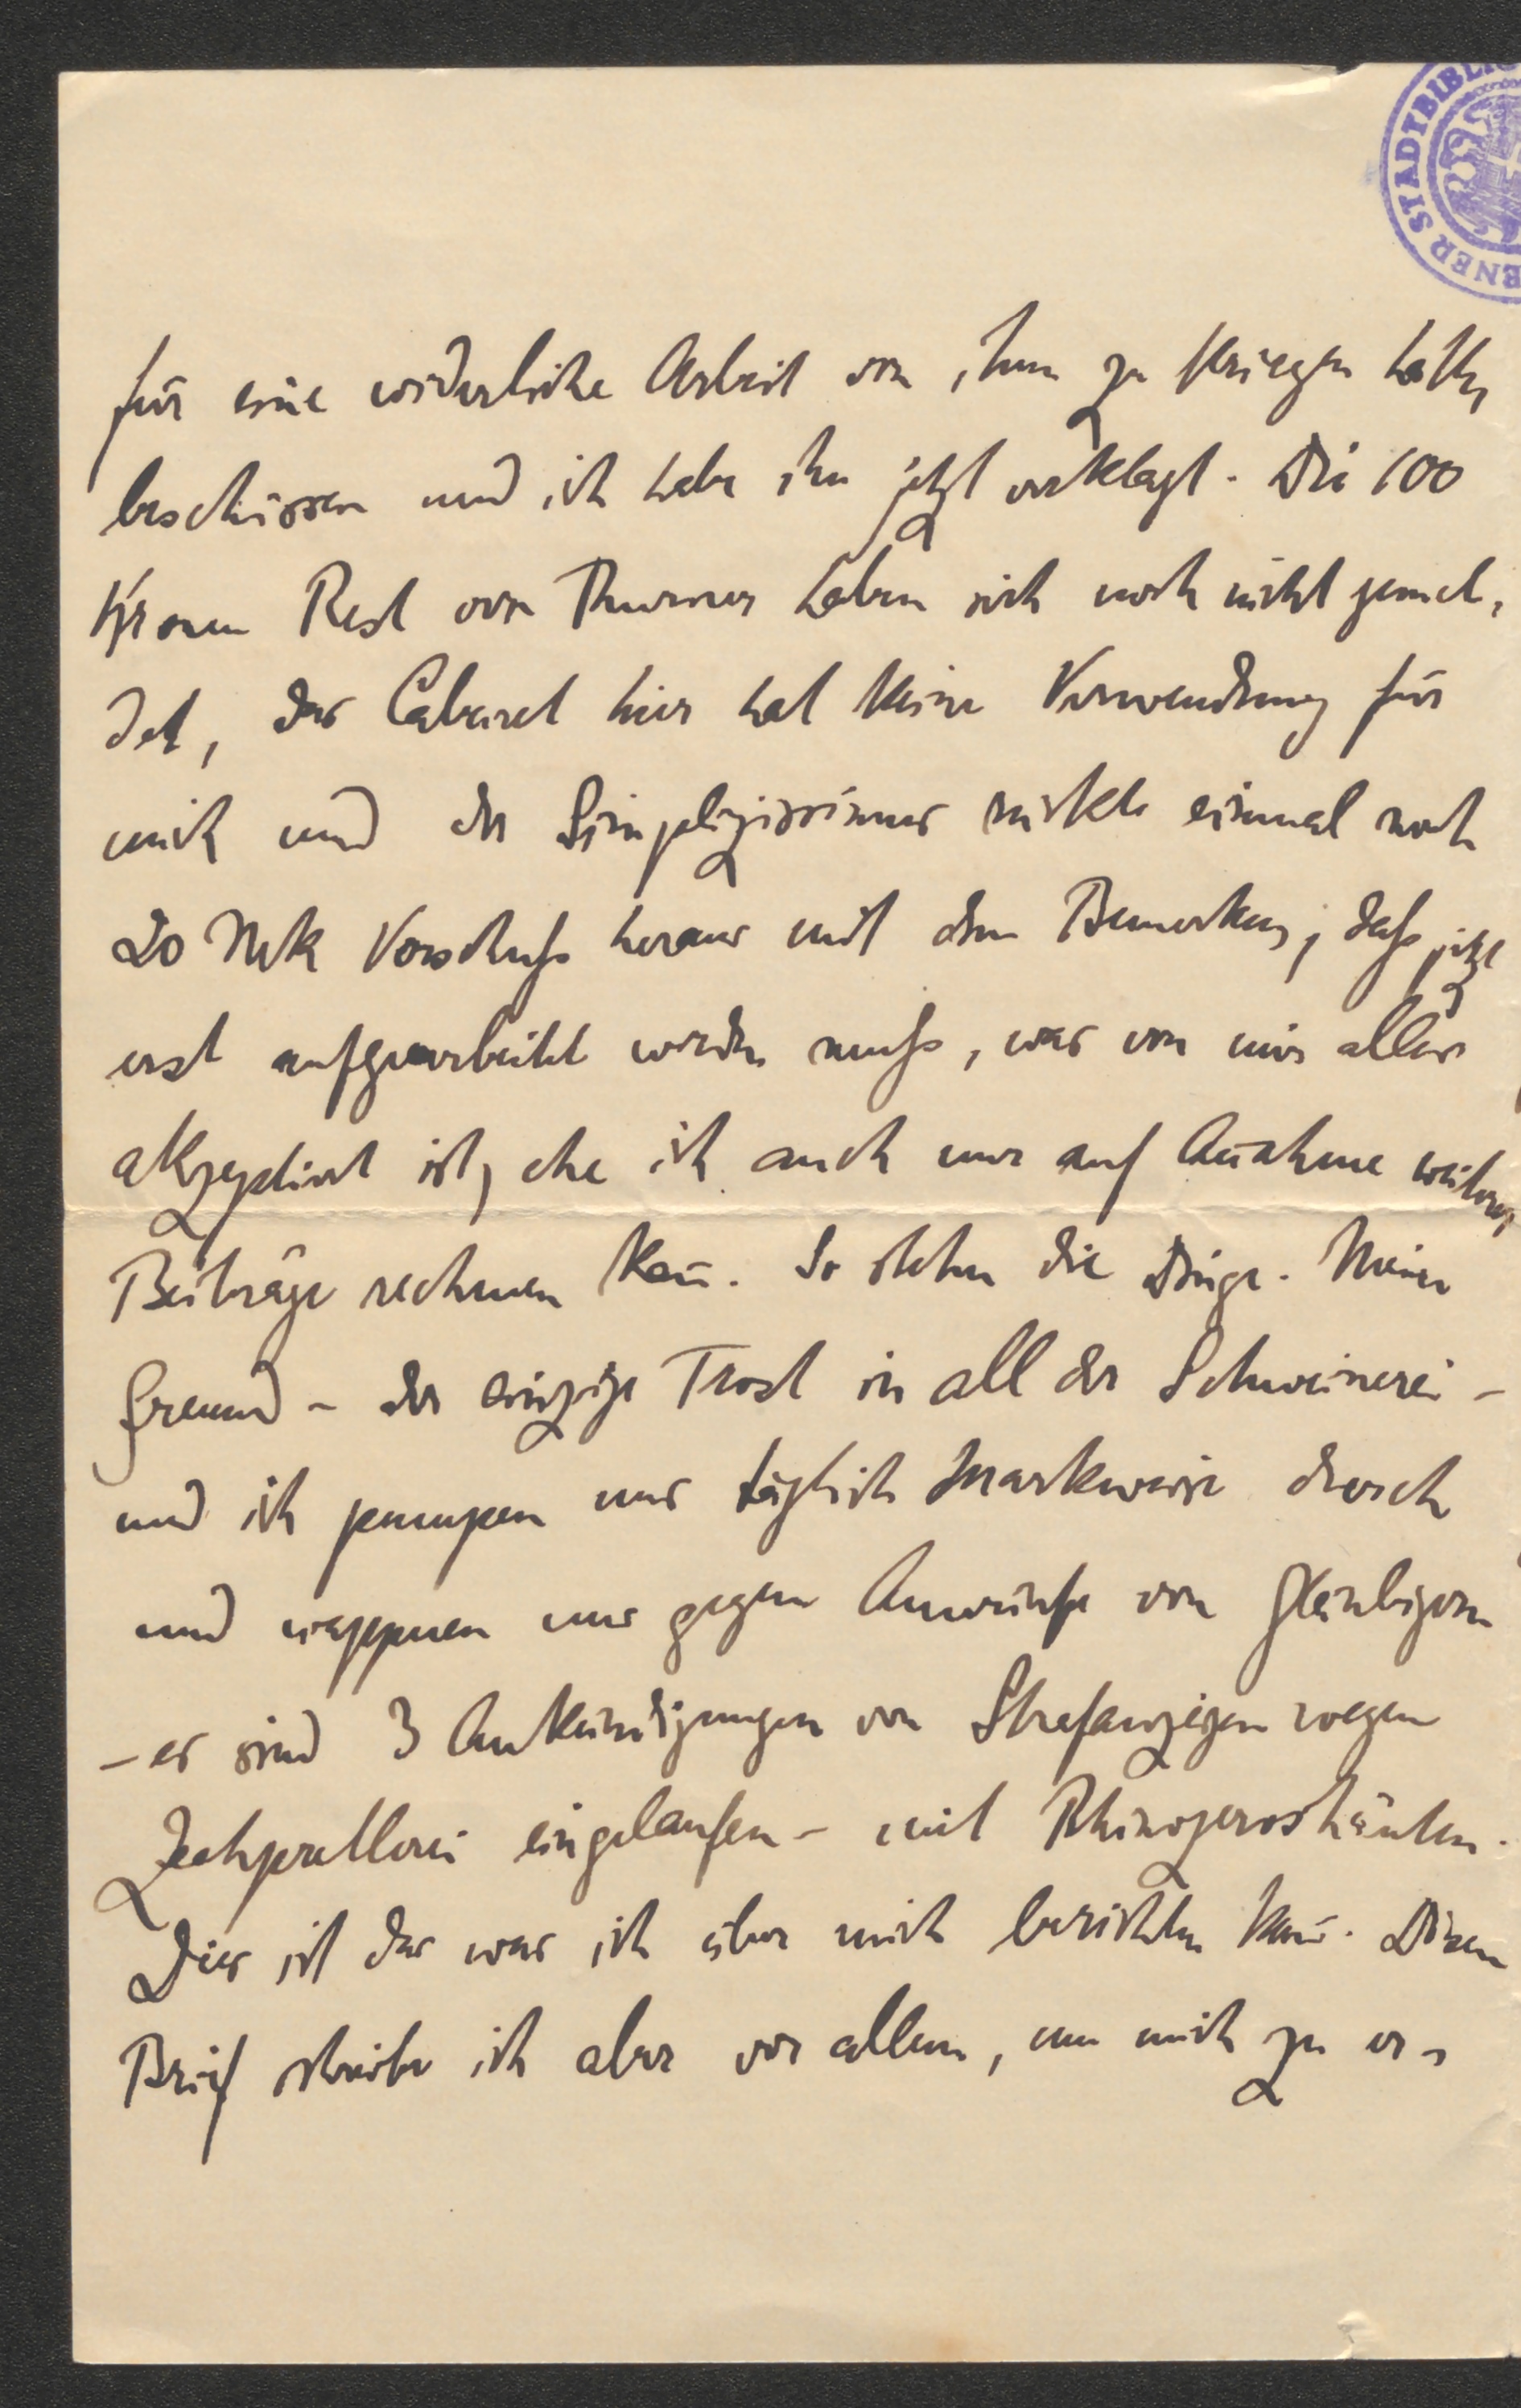 für eine widerliche Arbeit von ihm zu kriegen hatte,
beschissen und ich habe ihn jetzt verklagt. Die 100
Kronen Rest vom haben sich noch nicht gemel-
det, das Cabaret hier hat keine Verwendung für
mich und der Simplizissimus rückte einmal noch
20 Mk Vorschuß heraus mit dem Bemerken, daß jetzt
erst aufgearbeitet werden muß, was von mir alles
akzeptirt ist, ehe ich auch nur auf Anahme weiterer
Beiträge rechnen kan̄. So stehn die Dinge. Mein
Freund – der einzige Trost in all der Schweinerei –
und ich pumpen uns täglich markweise durch
und wappnen uns gegen Anwürfe von Gläubigern
– es sind 3 Ankündigungen von Strafanzeigen wegen
Zechprellerei eingelaufen – mit Rhinozeroshäuten.
Dies ist das was ich über mich berichten kan̄. Diesen
Brief schreibe ich aber vor allem, um mich zu er-
WIENER STADTBIBLIO